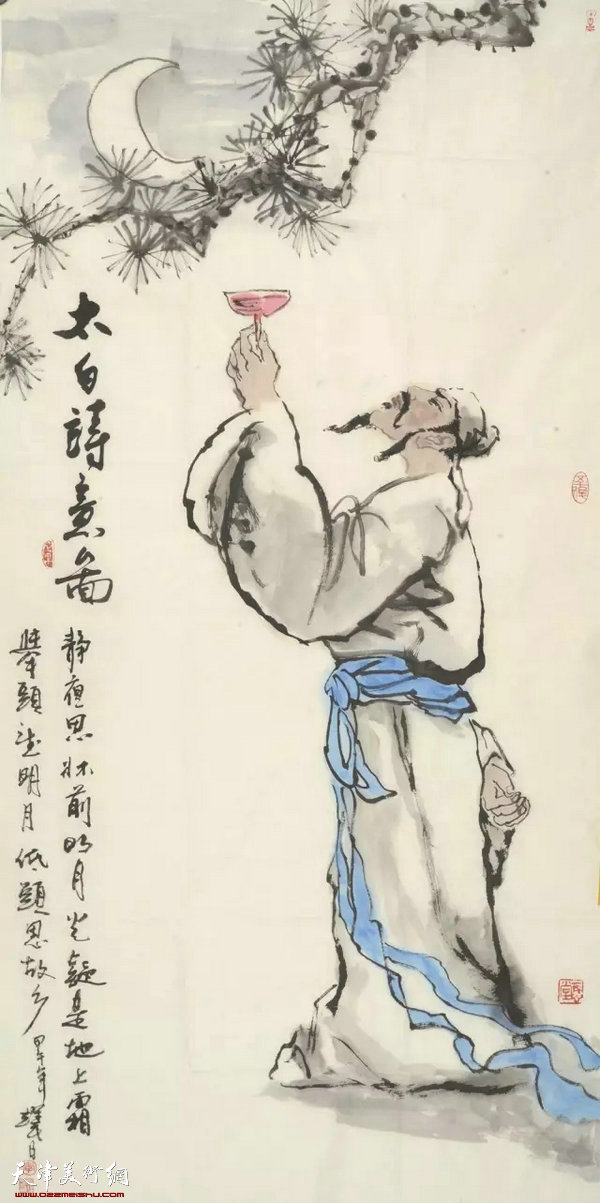 太白詩意圖
静夜思牀前明月光疑是地上霜
舉頭望明月低頭思故乡甲午年
天津美術網
www.022meishu.com